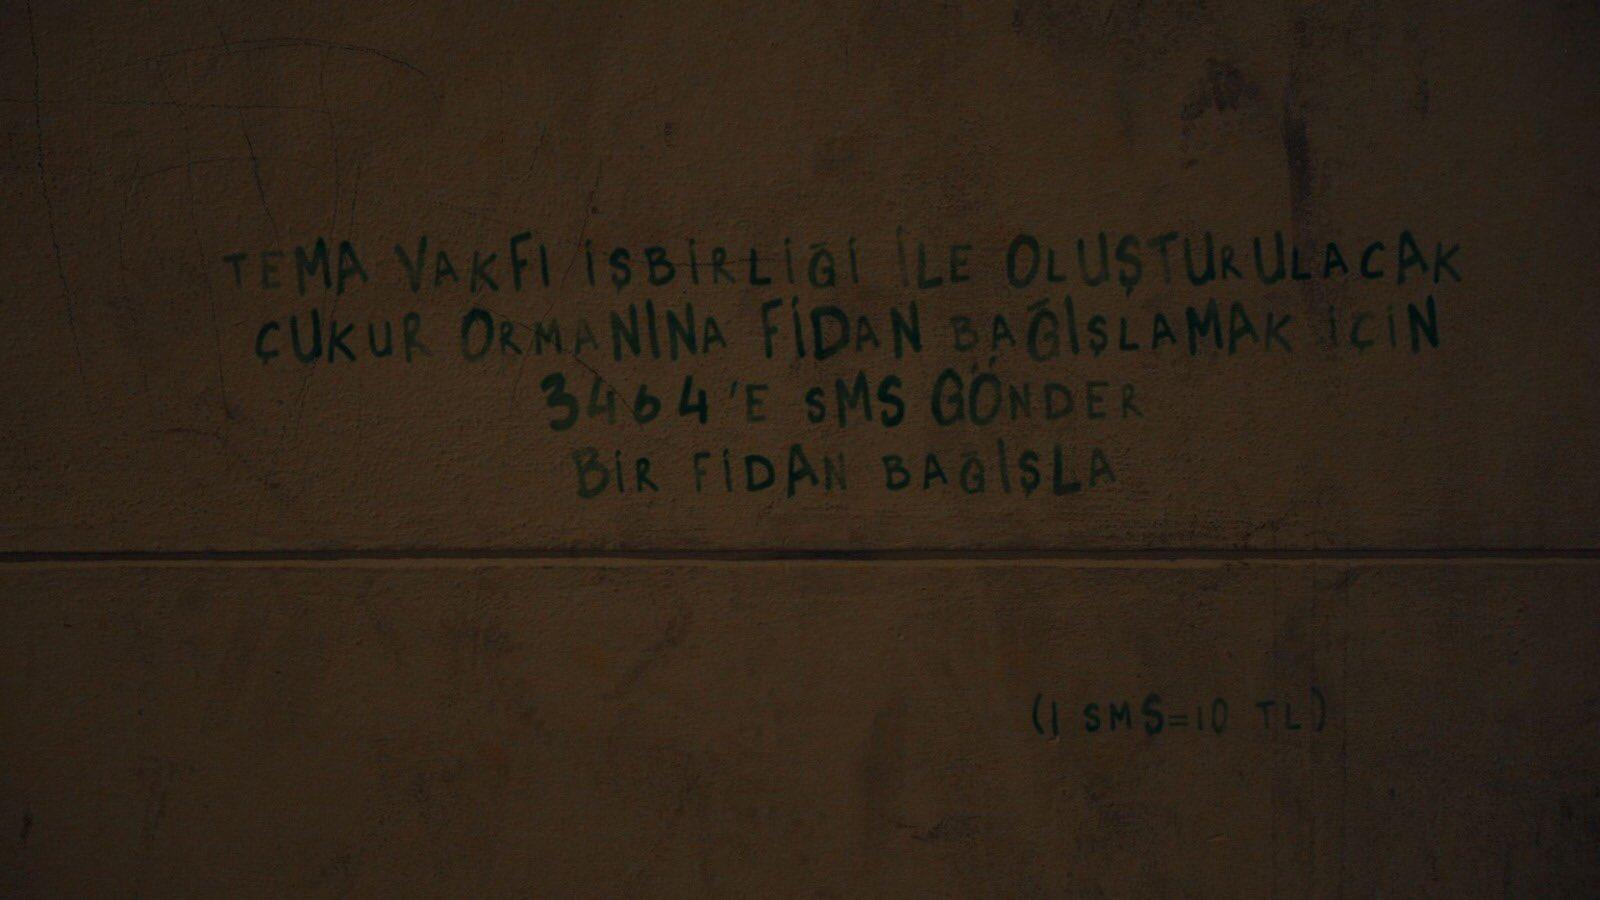 TEMA VAKFI İŞBİRLİĞİ İLE OLUŞTURULACAK
ÇUKUR ORMANINA FİDAN BAĞIŞLAMAK İÇİN
3464'E SMS GÖNDER
BİR FİDAN BAĞIŞLA
(1 SMS=10 TL)